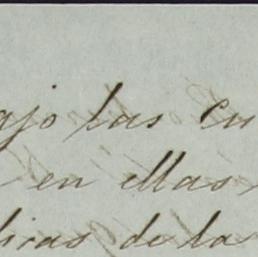 ajo las cu
en ellas
licas de la